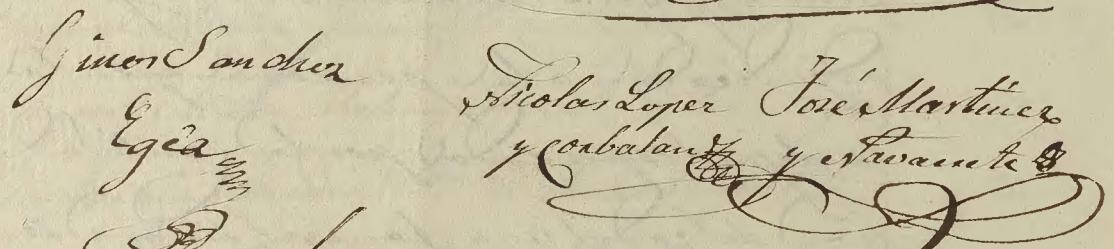 Gines Sanchez
Egéa
Nicolas Loper
y Corbalan
José Martinez
y Navarrete